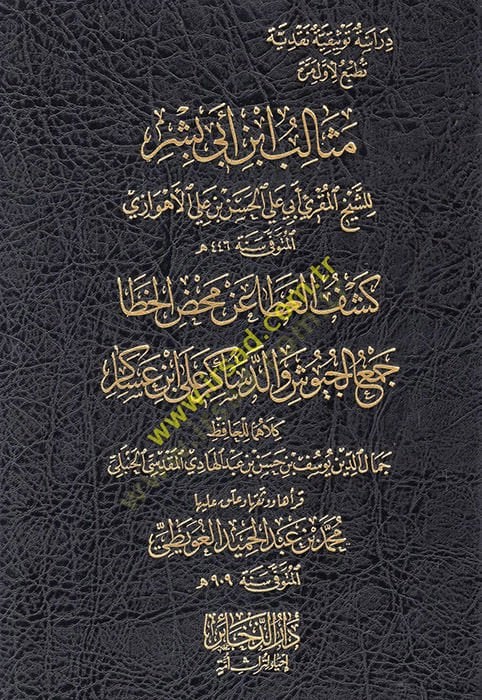 دراسة توثيقية نقدية
تطبع لأول مرة
مثالب ابن أبي بشر
للشيخ المقرئ أبي علي الحسن بن علي الأهوازي
المتوفى سنة ٤٤٦ هـ
كشف الغطا عن محض الخطا
جمع الجيوش والدساكر على ابن عساكر
كلاهما للحافظ
جمال الدين يوسف بن حسن بن عبد الهادي المقدسي الحنبلي
قرأها ووثقها وعلق عليها
محمد بن عبد الحميد العويطي
المتوفى سنة ٩٠٩ هـ
دار الذخائر
لإحياء تراث أمة